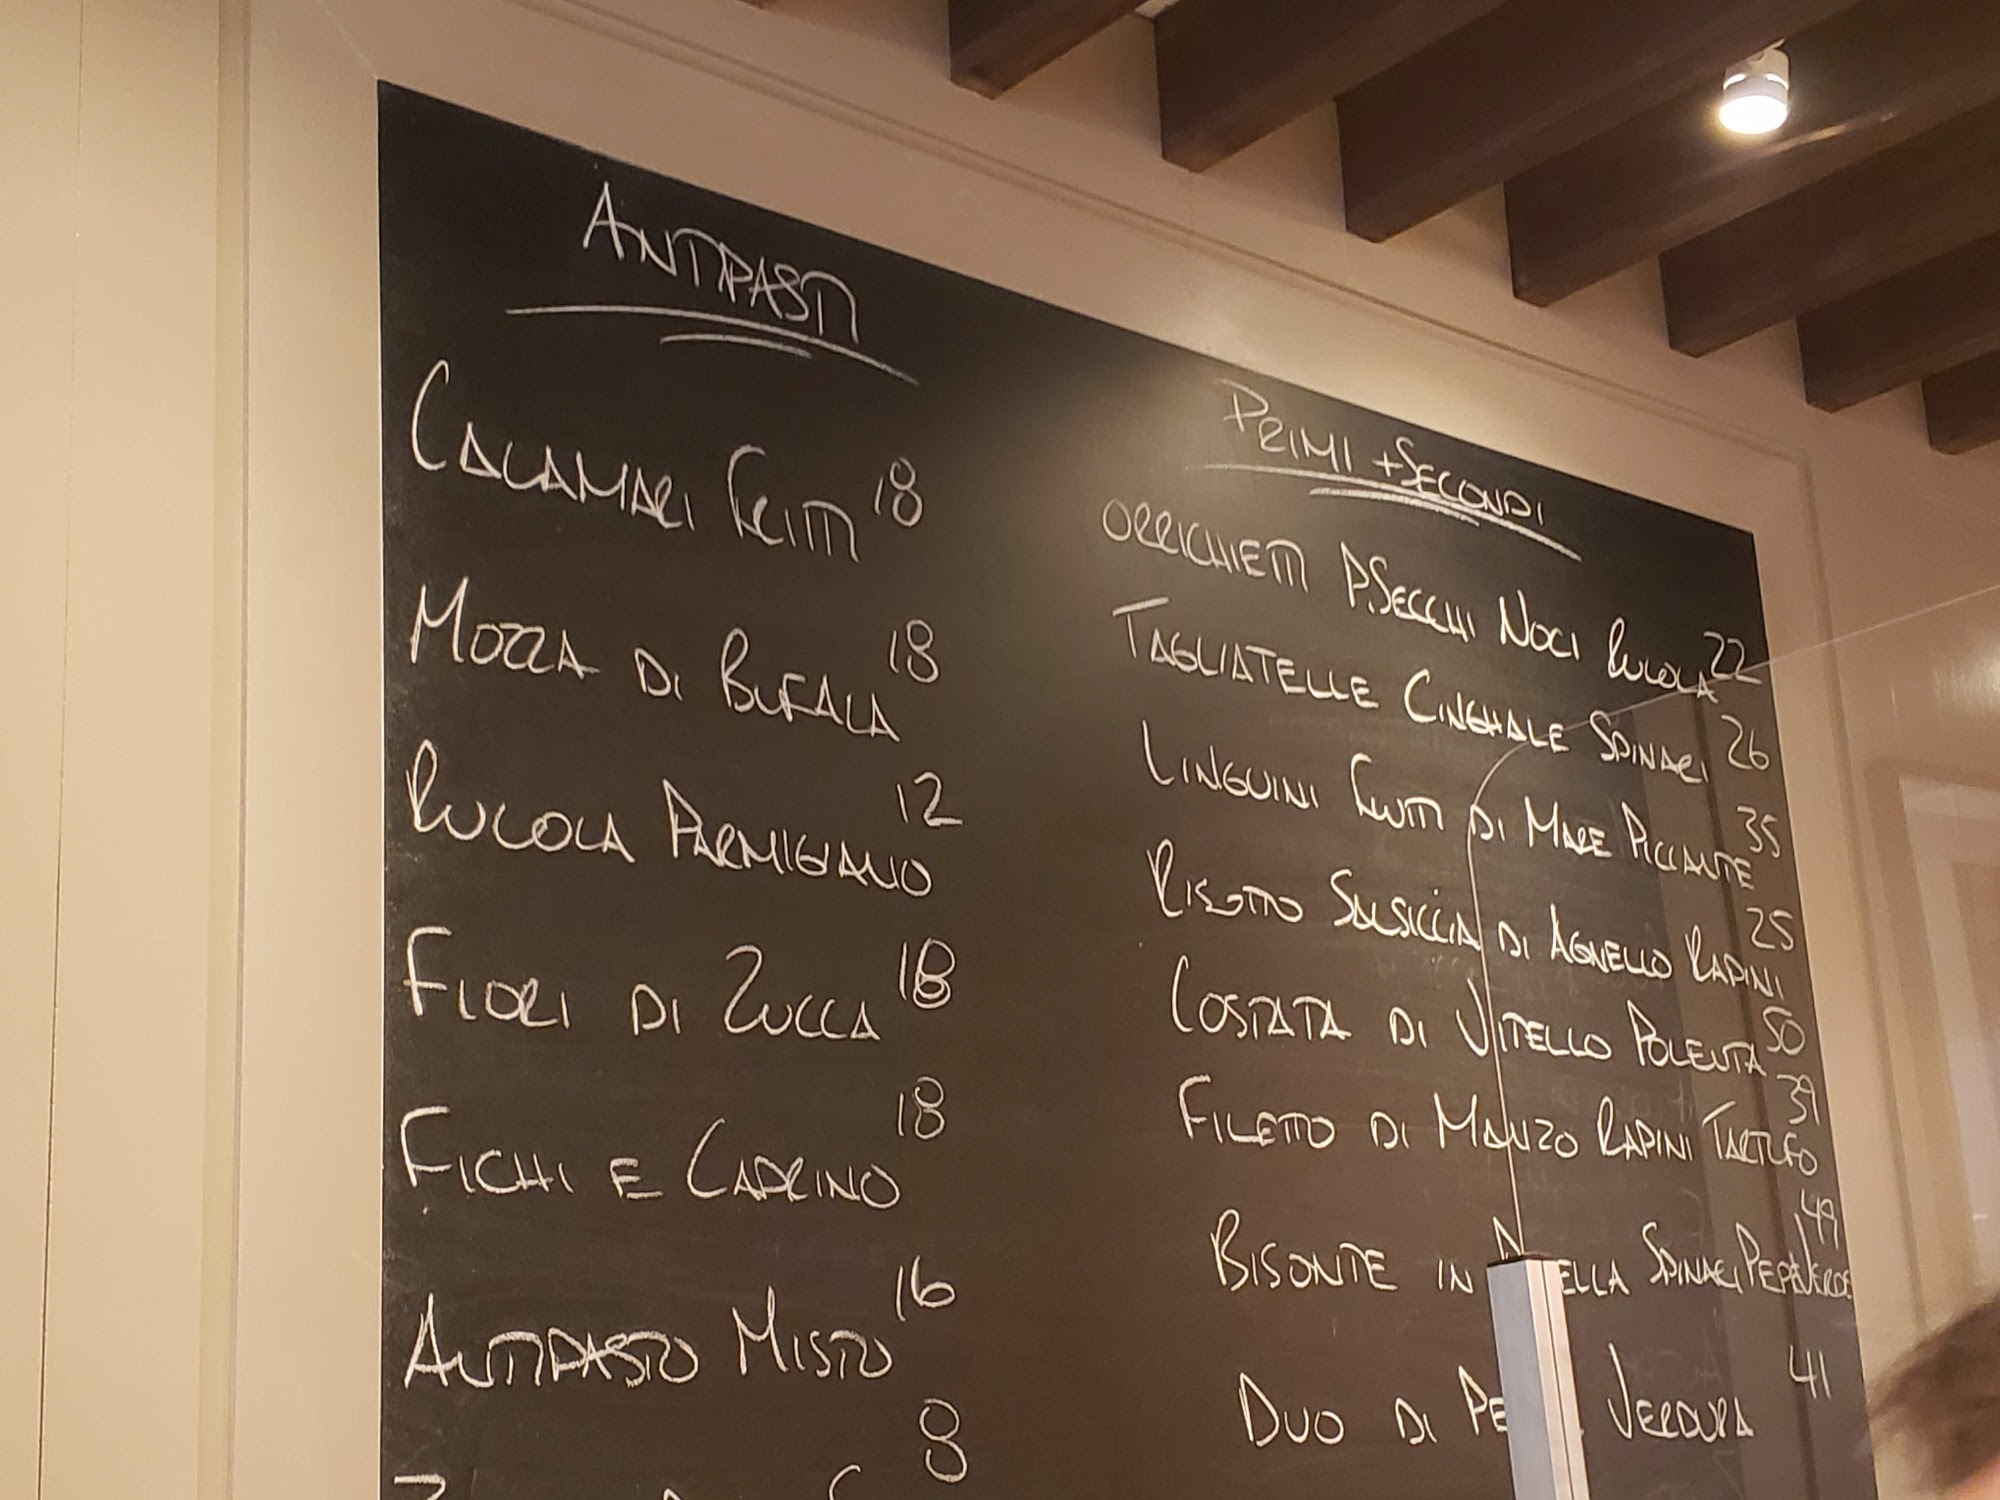 ANTIPASTI
CALAMARI FRITTI 18
MOZZA DI BUFALA 18
RUCOLA PARMIGIANO 12
FIORI DI ZUCCA 18
FICHI E CAPRINO 18
ANTIPASTO MISTO 16
8
PRIMI + SECONDI
ORRICHIETTI P.SECCHI NOCI RUCOLA 22
TAGLIATELLE CINGHALE SPINACI 26
LINGUINI FRUTTI DI MARE PICCANTE 35
RISOTTO SALSICCIA DI AGNELLO RAPINI 25
COSTATA DI VITELLO POLENTA 50
FILETTO DI MANZO RAPINI TARTUFO 39
BISONTE IN SPINACI PEPEVERDE 49
DUO DI VERDURA 41